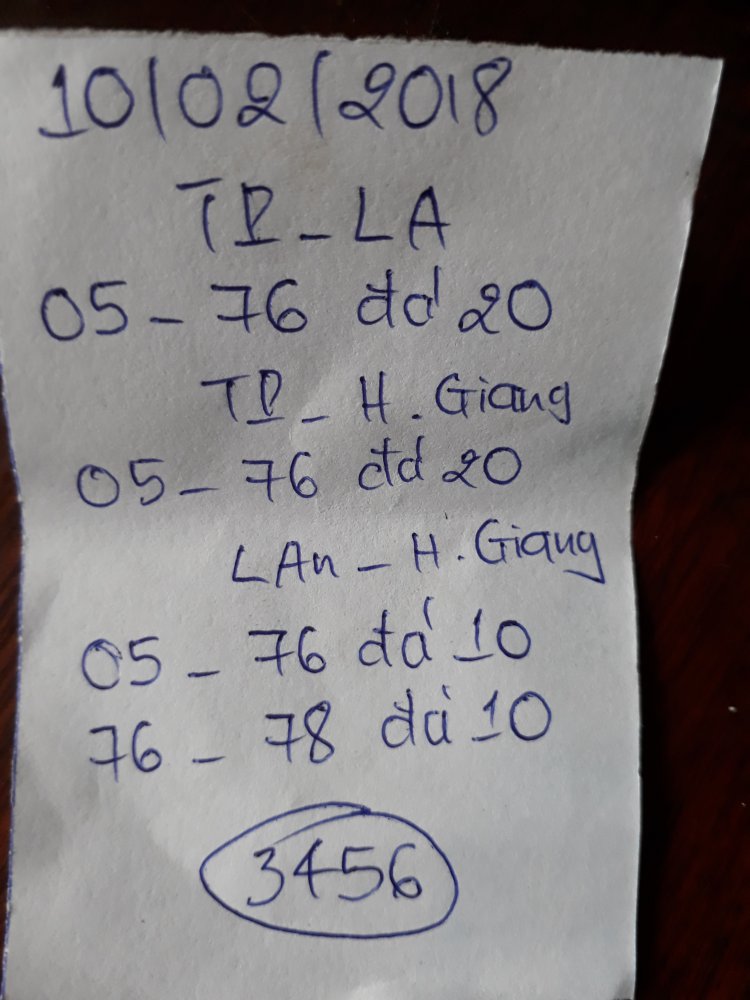 10/02/2018
TP - LA
05 - 76 đá 20
TP - H. Giang
05 - 76 đá 20
LAn - H. Giang
05 - 76 đá 10
76 - 78 đá 10
3456